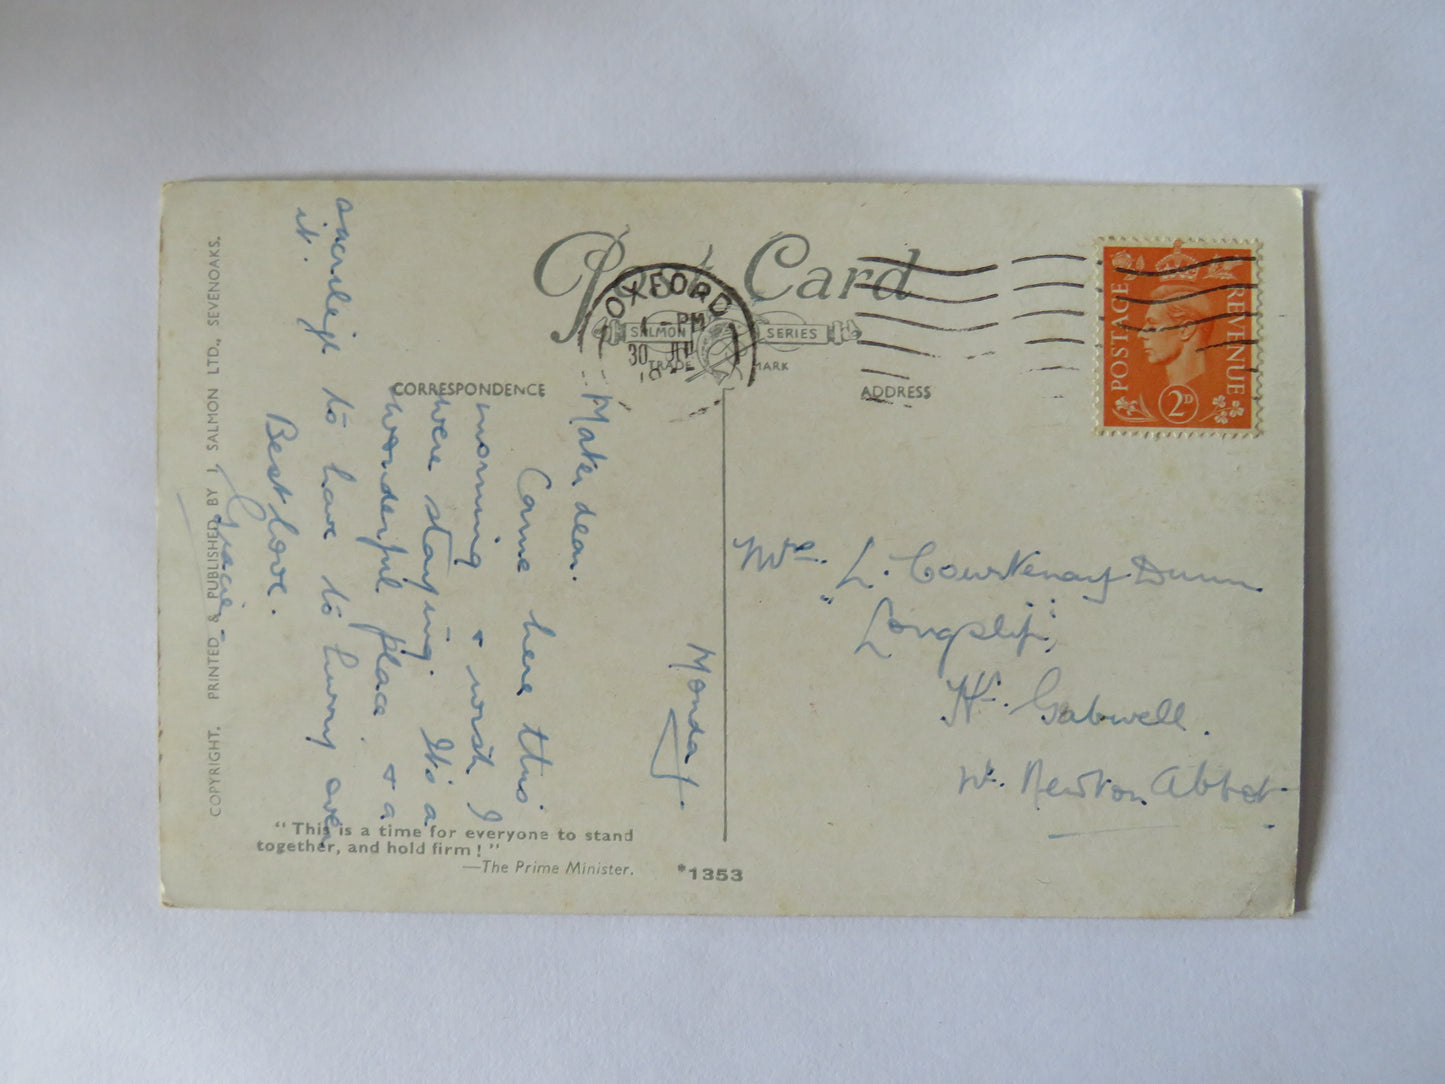 Post Card
SALMON SERIES
TRADE MARK
OXFORD
1 - PM
30 JU
19
POSTAGE
REVENUE
2D
CORRESPONDENCE
ADDRESS
Monday.
Mater dear.
Came here this
morning & wish I
were staying. It's a
wonderful place & a
sacrilege to have to hurry over
it.
Best love.
Gracie
Mrs. L. Courtenay Dunn
"Longclift",
Hr. Gabwell.
Nr. Newton Abbot
COPYRIGHT. PRINTED & PUBLISHED BY J. SALMON LTD., SEVENOAKS.
"This is a time for everyone to stand
together, and hold firm!"
—The Prime Minister.
*1353